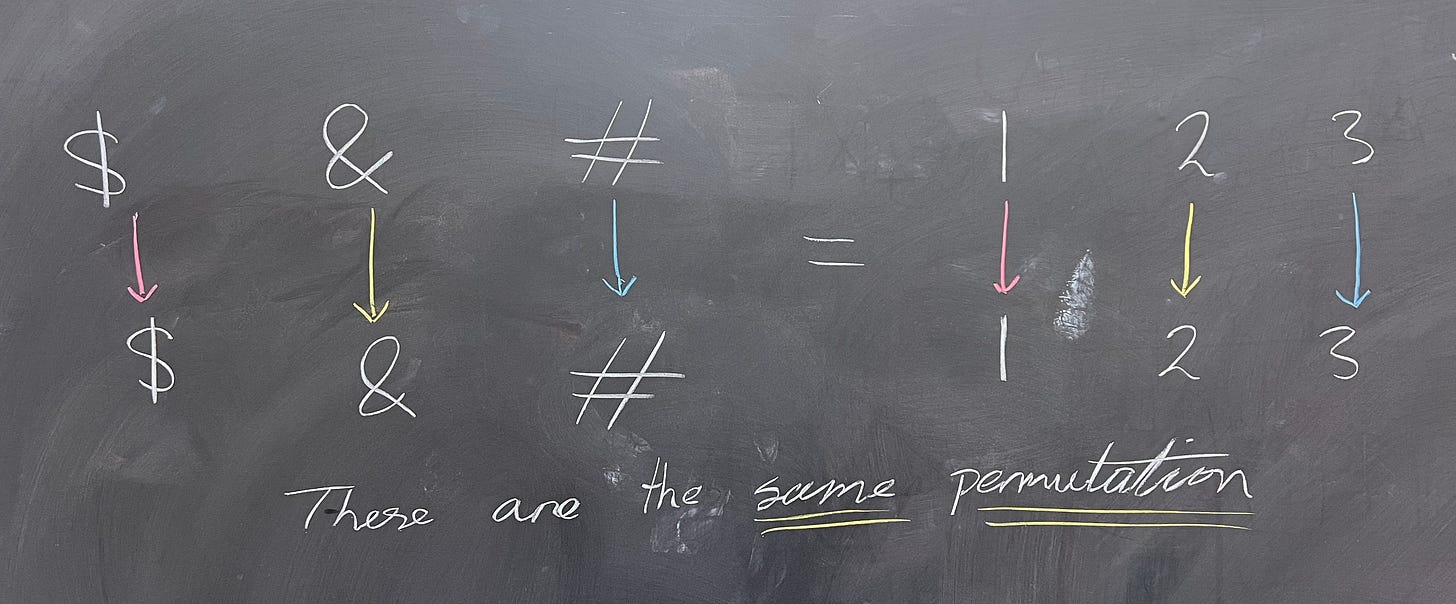 $ & # = 1 2 3
$ & # 1 2 3
These are the same permutation